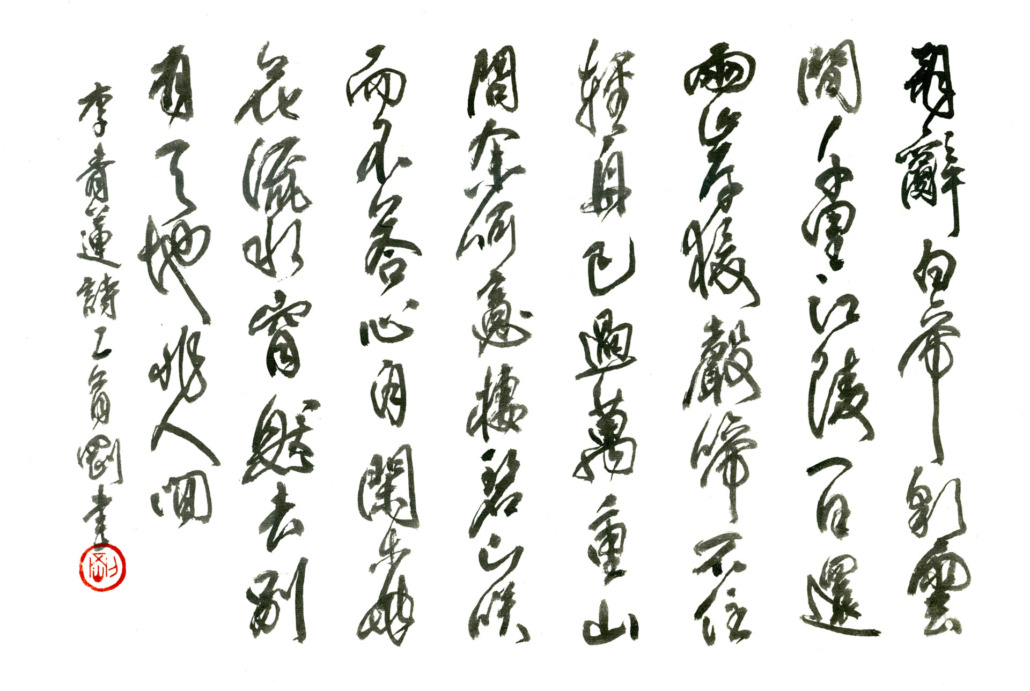 朝辭白帝彩雲
間千里江陵一日還
兩岸猿聲啼不住
輕舟已過萬重山
問余何意棲碧山笑
而不答心自閑桃
花流水窅然去別
有天地非人間
李青蓮詩二首剛書
剛